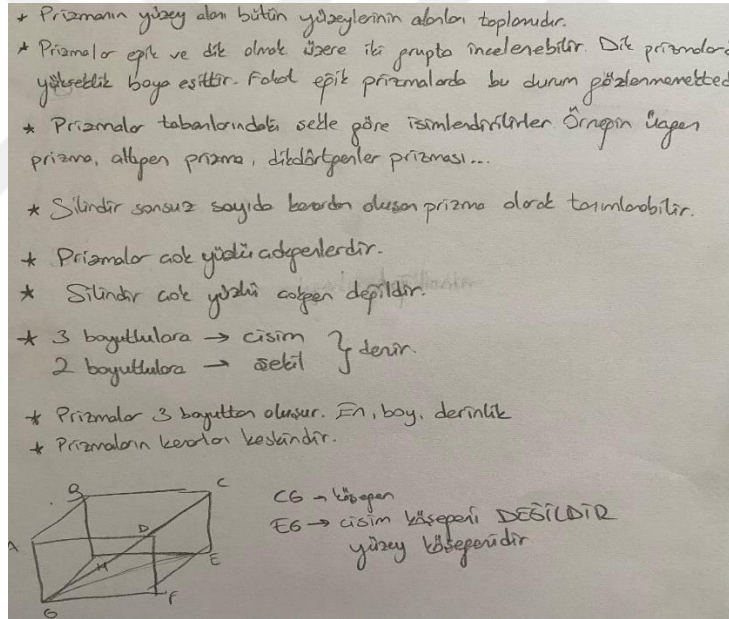 * Prizmanın yüzey alanı bütün yüzeylerinin alanları toplamıdır.
* Prizmalar eğik ve dik olmak üzere iki grupta incelenebilir. Dik prizmalard
yükseklik boya eşittir. Fakat eğik prizmalarda bu durum gözlenmemekted
* Prizmalar tabanlarındaki şekle göre isimlendirilirler Örneğin üçgen
prizma, altıgen prizma, dikdörtgenler prizması...
* Silindir sonsuz sayıda kenardan oluşan prizma olarak tanımlanabilir.
* Prizmalar çok yüzlü çokgenlerdir.
* Silindir çok yüzlü çokgen değildir.
* 3 boyutlulara → cisim } denir.
2 boyutlulara → şekil
* Prizmalar 3 boyuttan oluşur. En, boy, derinlik
* Prizmaların kenarları keskindir.
B C
A D
H E
G F
CG → köşegen
EG → cisim köşegeni DEĞİLDİR
yüzey köşegenidir